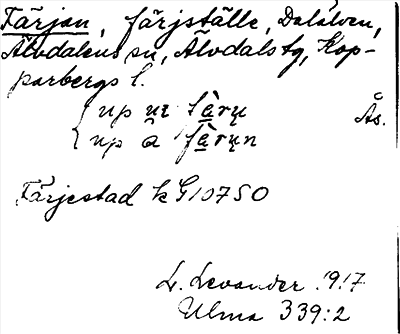 Färjan, färjställe, Dalälven,
Älvdalens sn, Älvdals tg, Kop-
parbergs l.
up
up Ås.
Färjestad k G10750
L. Levander 1917
Ulma 339:2